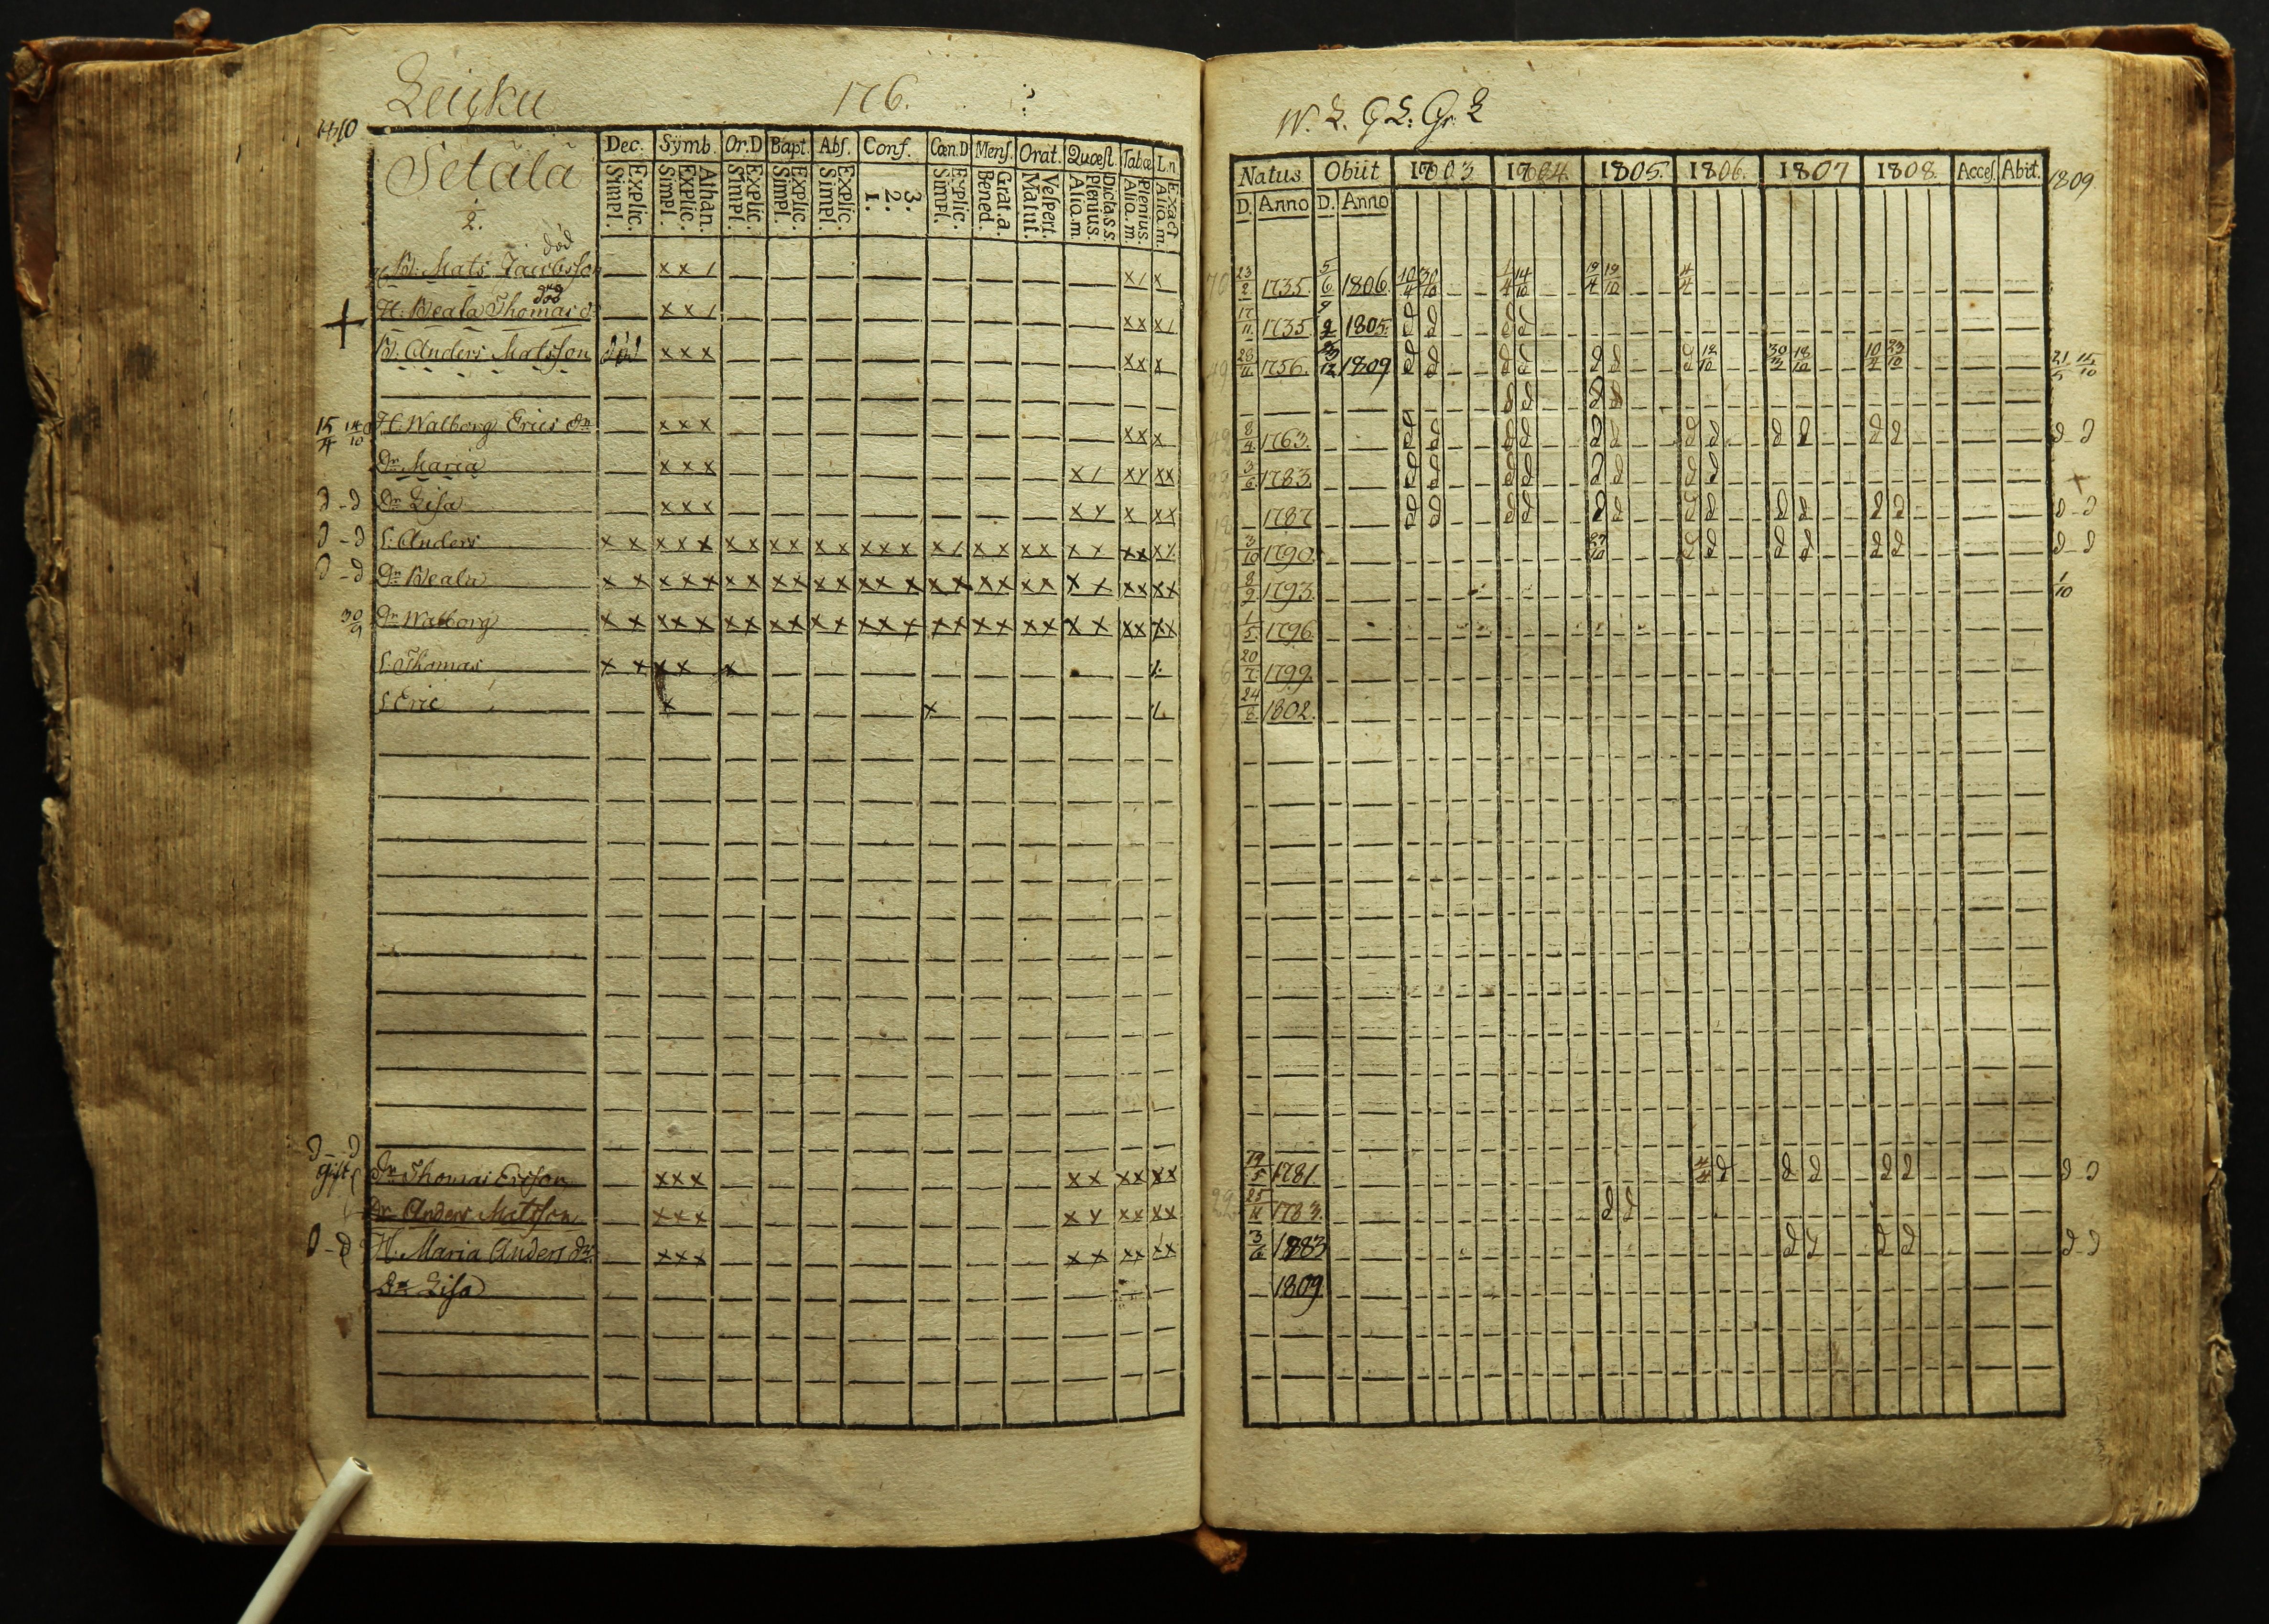 Leijku 176.
1810
Setälä
2.
Dec. Symb. Or.D Bapt. Abſ. Conf. Cœn.D Menſ. Orat. Quœſt. Tabœ L.n
Explic. Simpl. Athan. Explic. Simpl. Explic. Simpl. Explic. Simpl. Explic. Simpl. 3. 2. 1. Explic. Simpl. Grat.a. Bened. Veſpert. Matut. Dicta.s.s. Plenius. Alio.m. Plenius. Alio.m. Exact Alio.m.
död
B. Mats Jacobsson — xx/ — x/ x
död
H. Beata Thomas dr — xx/ — xx x/
B. Anders Matsson död xxx — xx x
15/4 14/10 H. Walborg Erics dr — xxx — xx x
Dr Maria — xxx — x/ xx xx
d - d Dr Lisa — xxx — xx x xx
d - d S. Anders xx xxx xx xx xx xxx x/ xx xx xx xx x/
d - d Dr Beata xx xxx xx xx xx xxx xx xx xx xx xx xx
30/9 Dr Walborg xx xxx xx xx xx xxx xx xx xx xx xx xx
S. Thomas xx xx x
S. Eric x x
d - d
gift Dr Thomas Ericson — xxx — xx xx xx
Dr Anders Matsson — xxx — xx xx xx
d - d H. Maria Anders dr — xxx — xx xx xx
Dr Lisa
W. L. G L: Gr. L
Natus Obiit 1803 1804 1805. 1806. 1807 1808. Acceſ. Abit. 1809.
D. Anno D. Anno
70 23/2 1735. 5/6 1806. 10/4 30/10 1/4 14/10 19/4 19/10 4/4
17/11 1735 9/2 1805. d d d d
28/11 1756. 3/12 1809 d d d d d d d 12/10 30/3 18/10 10/4 23/10 21/5 15/10
d d d d
8/4 1763. d d d d d d d d d d d d d - d
3/6 1783. d d d d d d d d +
18 1787 d d d d d d d d d d d d d - d
15 3/10 1790. 27/10 d d d d d d d - d
8/2 1793. 1/10
9 1/5 1796
6 20/7 1799.
24/8 1802.
19/5 1781. 4/4 d d d d d d - d
22 25/11 1783. d d
3/6 1783 d d d d d - d
1809.